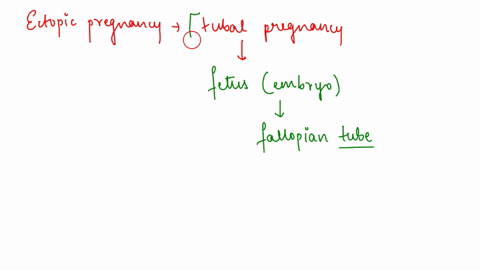 Ectopic pregnancy → tubal pregnancy
↓
fetus (embryo)
↓
fallopian tube